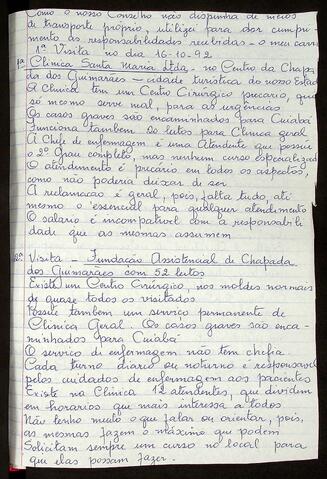 Como o nosso Conselho não dispunha de meios
de transporte próprio, utilizei para dar cumpri-
mento as responsabilidades recebidas - o meu carro
1ª Visita - no dia 16-10-92
1ª Clínica Santa Maria Ltda - no Centro da Chapa
da dos Guimarães - cidade turística do nosso Estado
A Clínica tem um Centro Cirúrgico precario, que
só mesmo serve mal, para as urgências
Os casos graves são encaminhados para Cuiabá
Funciona também 20 leitos para Clínica geral
A Chefe de enfermagem é uma Atendente que possui
o 2º Grau completo, mas nenhum curso especializado
O atendimento é precário em todos os aspectos,
como não poderia deixar de ser
A reclamação é geral, pois, falta tudo, até
mesmo o essencial para qualquer atendimento
O salário é incompatível com a responsabili
dade que as mesmas assumem
2ª Visita - Fundação Assistencial de Chapada
dos Guimarães com 52 leitos
Existe um Centro Cirúrgico, nos moldes normais
de quase todos os visitados
Possue também um serviço permanente de
Clínica Geral. Os casos graves são enca-
minhados para Cuiabá
O serviço de enfermagem não tem chefia.
Cada turno diário ou noturno é responsavel
pelos cuidados de enfermagem aos pacientes
Existe na Clínica 12 atendentes, que dividem
em horarios que mais interessa a todos
Não tenho muito o que falar ou orientar, pois,
as mesmas fazem o máximo que podem
Solicitam sempre um curso no local para
que elas possam fazer.